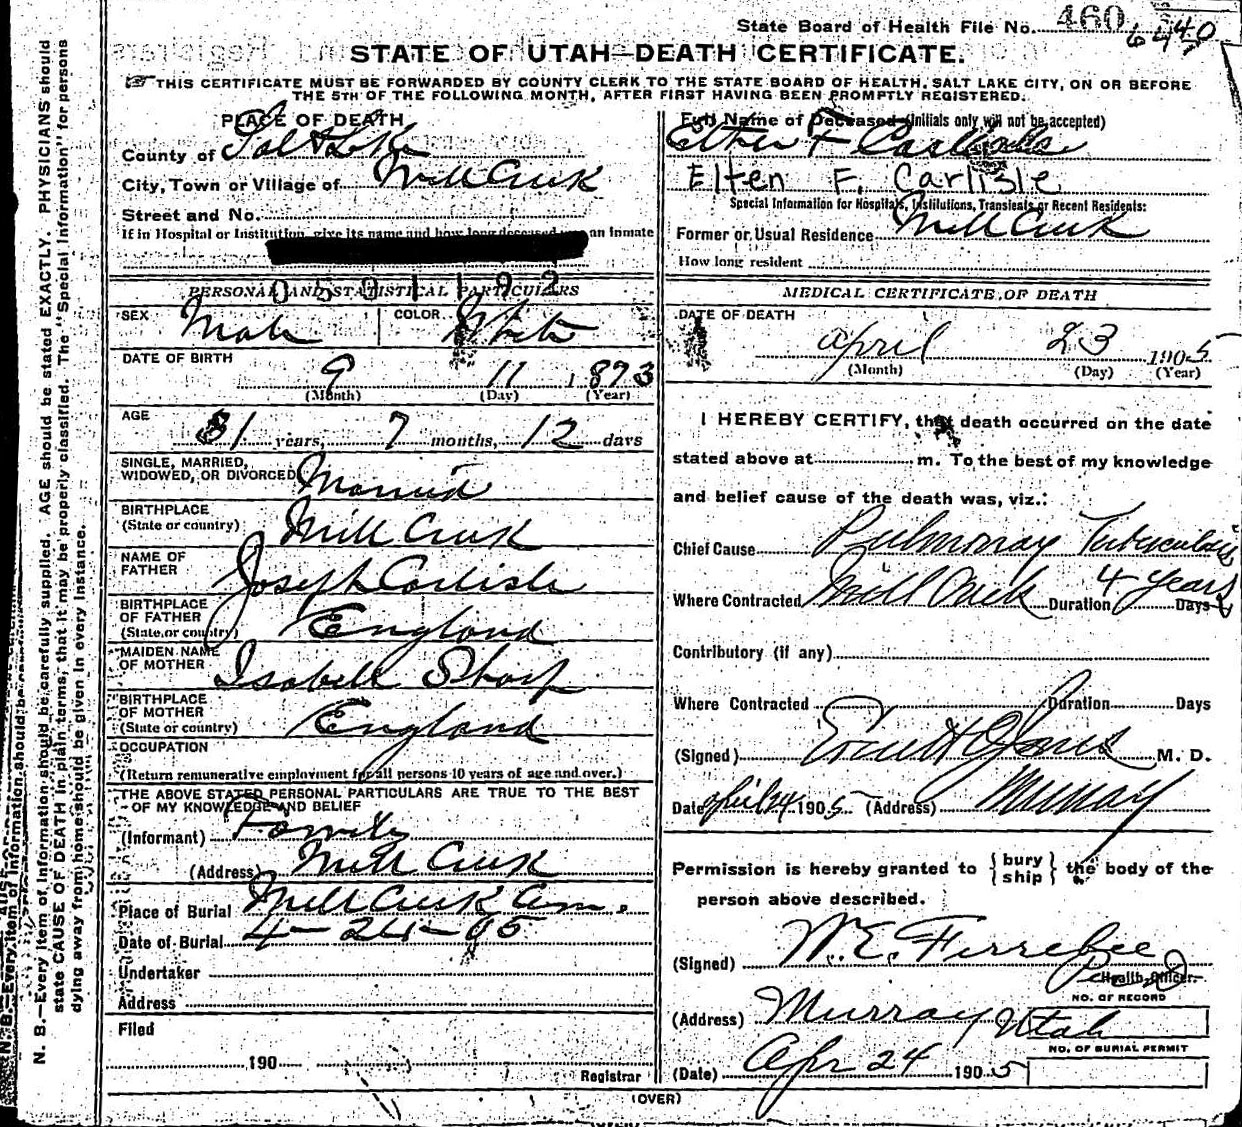 State Board of Health File No. 460
6440
STATE OF UTAH—DEATH CERTIFICATE.
THIS CERTIFICATE MUST BE FORWARDED BY COUNTY CLERK TO THE STATE BOARD OF HEALTH, SALT LAKE CITY, ON OR BEFORE
THE 5TH OF THE FOLLOWING MONTH, AFTER FIRST HAVING BEEN PROMPTLY REGISTERED.
PLACE OF DEATH
County of Salt Lake
City, Town or Village of Mill Creek
Street and No.
If in Hospital or Institution, give its name and how long deceased was an Inmate
0501192
PERSONAL AND STATISTICAL PARTICULARS
SEX Male COLOR White
DATE OF BIRTH
9 11 1873
(Month) (Day) (Year)
AGE
31 years, 7 months, 12 days
SINGLE, MARRIED,
WIDOWED, OR DIVORCED Married
BIRTHPLACE
(State or country) Mill Creek
NAME OF
FATHER Joseph Carlisle
BIRTHPLACE
OF FATHER
(State or country) England
MAIDEN NAME
OF MOTHER Isabell Sharp
BIRTHPLACE
OF MOTHER
(State or country) England
OCCUPATION
(Return remunerative employment for all persons 10 years of age and over.)
THE ABOVE STATED PERSONAL PARTICULARS ARE TRUE TO THE BEST
OF MY KNOWLEDGE AND BELIEF
(Informant) Family
(Address) Mill Creek
Place of Burial Mill Creek Cem.
Date of Burial 4-24-05
Undertaker
Address
Filed
190
Registrar
Full Name of Deceased (Initials only will not be accepted)
F Carlisle
Elten F. Carlisle
Special Information for Hospitals, Institutions, Transients or Recent Residents:
Former or Usual Residence Mill Creek
How long resident
MEDICAL CERTIFICATE OF DEATH
DATE OF DEATH
April 23 1905
(Month) (Day) (Year)
I HEREBY CERTIFY, that death occurred on the date
stated above at m. To the best of my knowledge
and belief cause of the death was, viz.:
Chief Cause Pulmonary Tuberculosis
Where Contracted Mill Creek Duration 4 years Days
Contributory (if any)
Where Contracted Duration Days
(Signed) Jones M. D.
Date April 24 1905 (Address) Murray
Permission is hereby granted to {bury ship} the body of the
person above described.
(Signed) W. E. Ferrebee
Health Officer.
NO. OF RECORD
(Address) Murray Utah
NO. OF BURIAL PERMIT
(Date) Apr 24 1905
(OVER)
N. B.—Every item of information should be carefully supplied. AGE should be stated EXACTLY. PHYSICIANS should
state CAUSE OF DEATH in plain terms, that it may be properly classified. The "Special Information" for persons
dying away from home should be given in every instance.